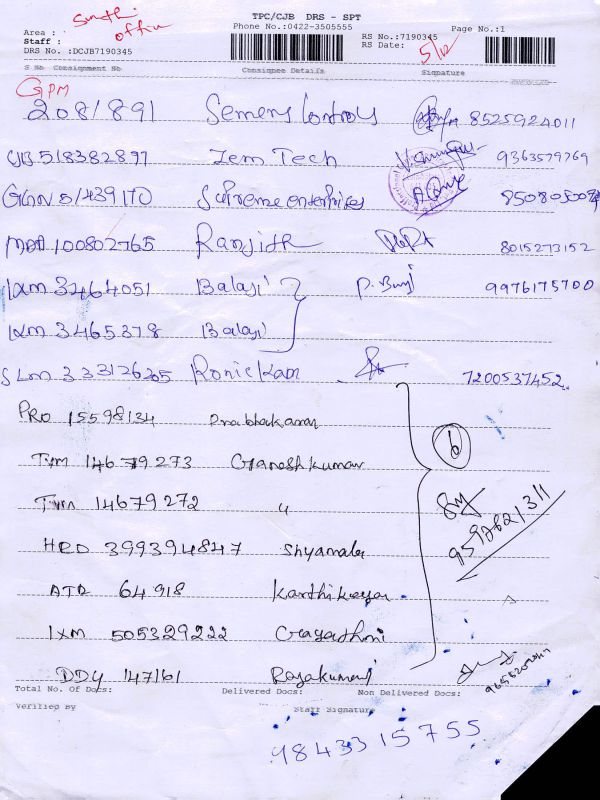 TPC/CJB DRS - SPT
Phone No.:0422-3505555
Page No.:1
South office
Area :
Staff :
DRS No. :DCJB7190345
RS No.:7190345
RS Date: 5/12
S No Consignment No Consignee Details Signature
GPM
208/891 Semens Controls 8525924011
CJB 518382897 Zem Tech 9363579769
GGN 51439170 Supreme enterprises
MAA 100802765 Ranjith 8015273152
IXM 3464051 Balaji 9976175700
IXM 3465378 Balaji
SLM 33312635 Ronickam 7200537452
PRO 15598134 Prabhakaran
TVM 14679273 Ganeshkumar
6
TVM 14679272 "
HRD 399394847 Shyamala
ATD 64918 Karthikeyan
IXM 505329222 Gayathri
DDY 147161 Rajakumari
Total No. Of Docs: Delivered Docs: Non Delivered Docs:
Verified By Staff Signature
9843315755